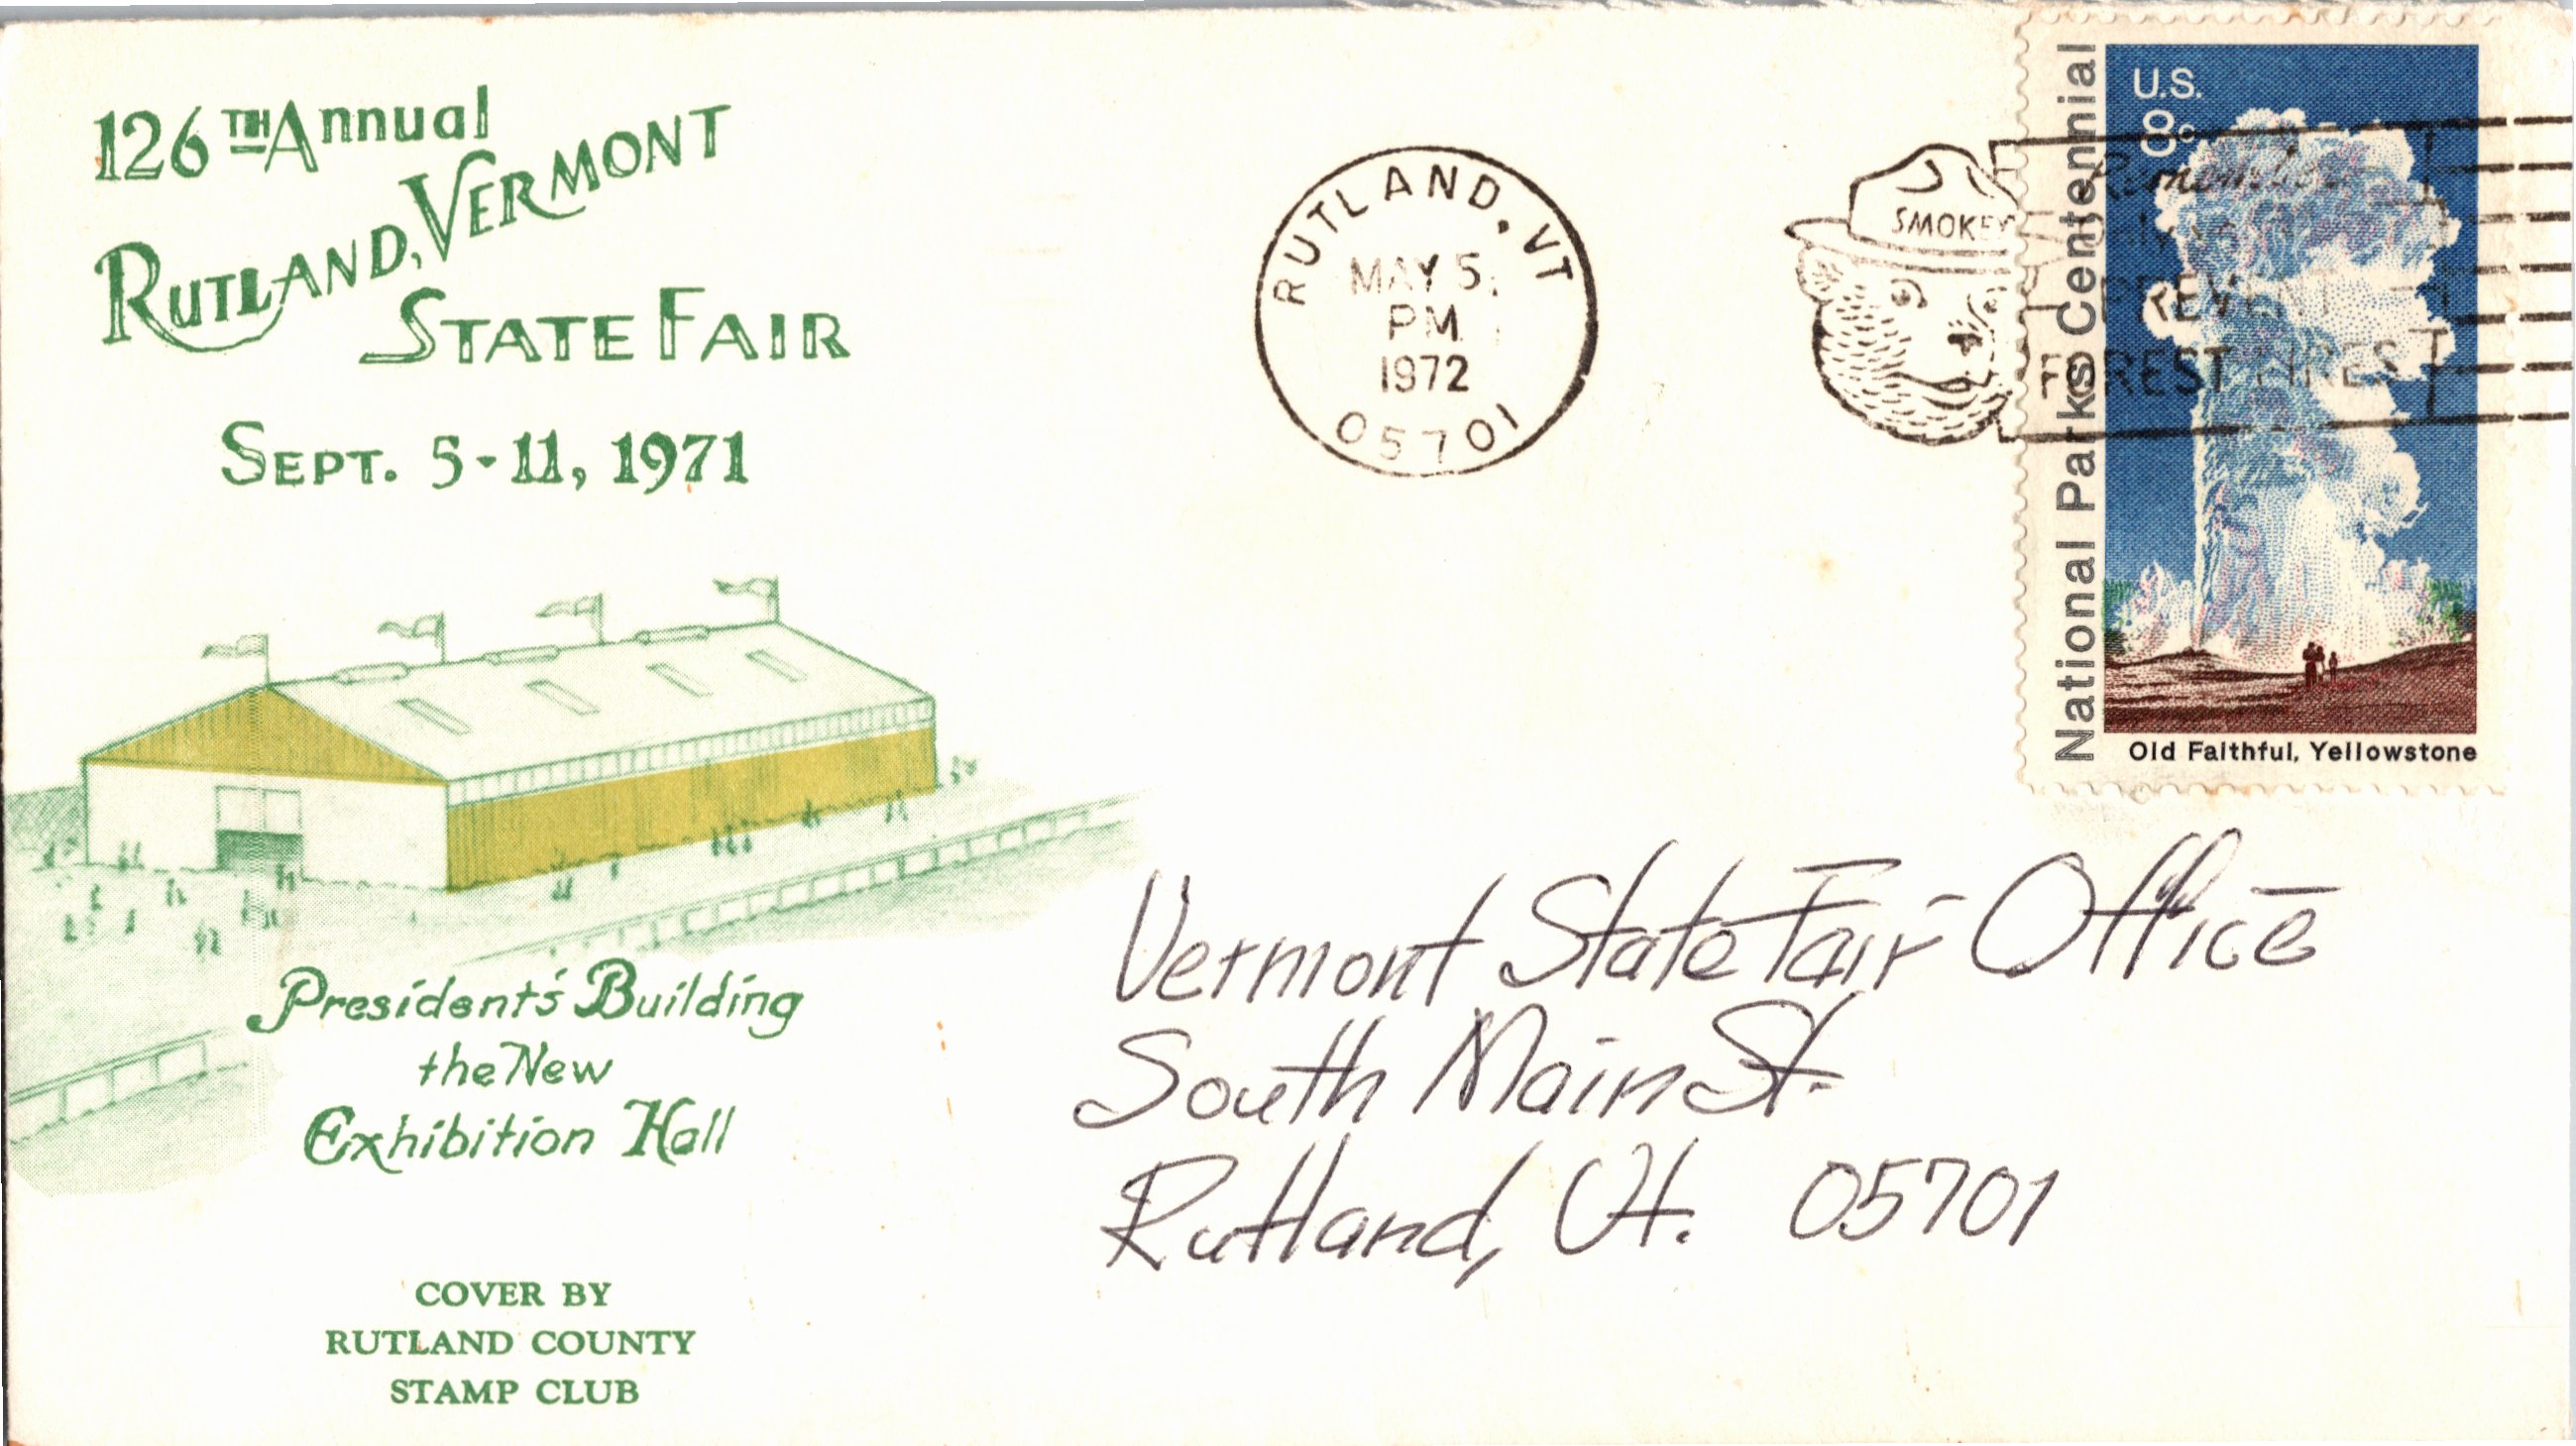 126TH Annual
RUTLAND, VERMONT
STATE FAIR
SEPT. 5-11, 1971
President's Building
the New
Exhibition Hall
COVER BY
RUTLAND COUNTY
STAMP CLUB
RUTLAND, VT
MAY 5
PM
1972
05701
SMOKEY
Remember
PREVENT
FOREST FIRES
U.S.
8c
National Parks Centennial
Old Faithful, Yellowstone
Vermont State Fair Office
South Main St.
Rutland, Vt. 05701